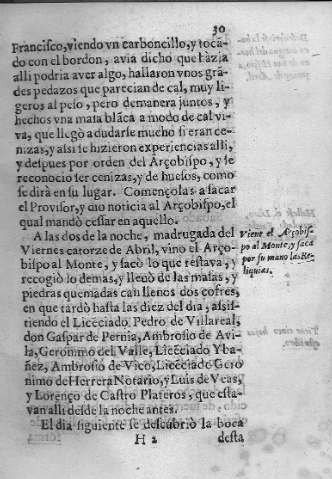 30
Francisco, viendo vn carboncillo, y tocã-
do con el bordon, avia dicho que hàzia
alli podria aver algo, hallaron vnos grã-
des pedazos que parecian de cal, muy li-
geros al peso, pero demanera juntos, y
hechos vna masa blãca a modo de cal vi-
va, que llegò a dudarse mucho si eran ce-
nizas, y assi se hizieron experiencias alli,
y despues por orden del Arçobispo, y se
reconociò ser cenizas, y de huesos, como
se dirà en su lugar. Començolas a sacar
el Provisor, y dio noticia al Arçobispo, el
qual mandò cessar en aquello.
A las dos de la noche, madrugada del
Viernes catorze de Abril, vino el Arço-
bispo al Monte, y sacò lo que restava, y
recogiò lo demas, y llenò de las masas, y
piedras quemadas casi llenos dos cofres,
en que tardò hasta las diez del dia, assis-
tiendo el Licẽciado Pedro de Villareal,
don Gaspar de Pernia, Ambrosio de Avi-
la, Geronimo del Valle, Licẽciado Yba-
ñez, Ambrosio de Vico, Licẽciado Gero
nimo de Herrera Notario, y Luis de Veas,
y Lorenço de Castro Plateros, que esta-
van alli desde la noche antes.
El dia siguiente se descubriò la boca
H 2 desta
Viene el Arçobis-
po al Monte, y saca
por su mano las Re-
liquias.